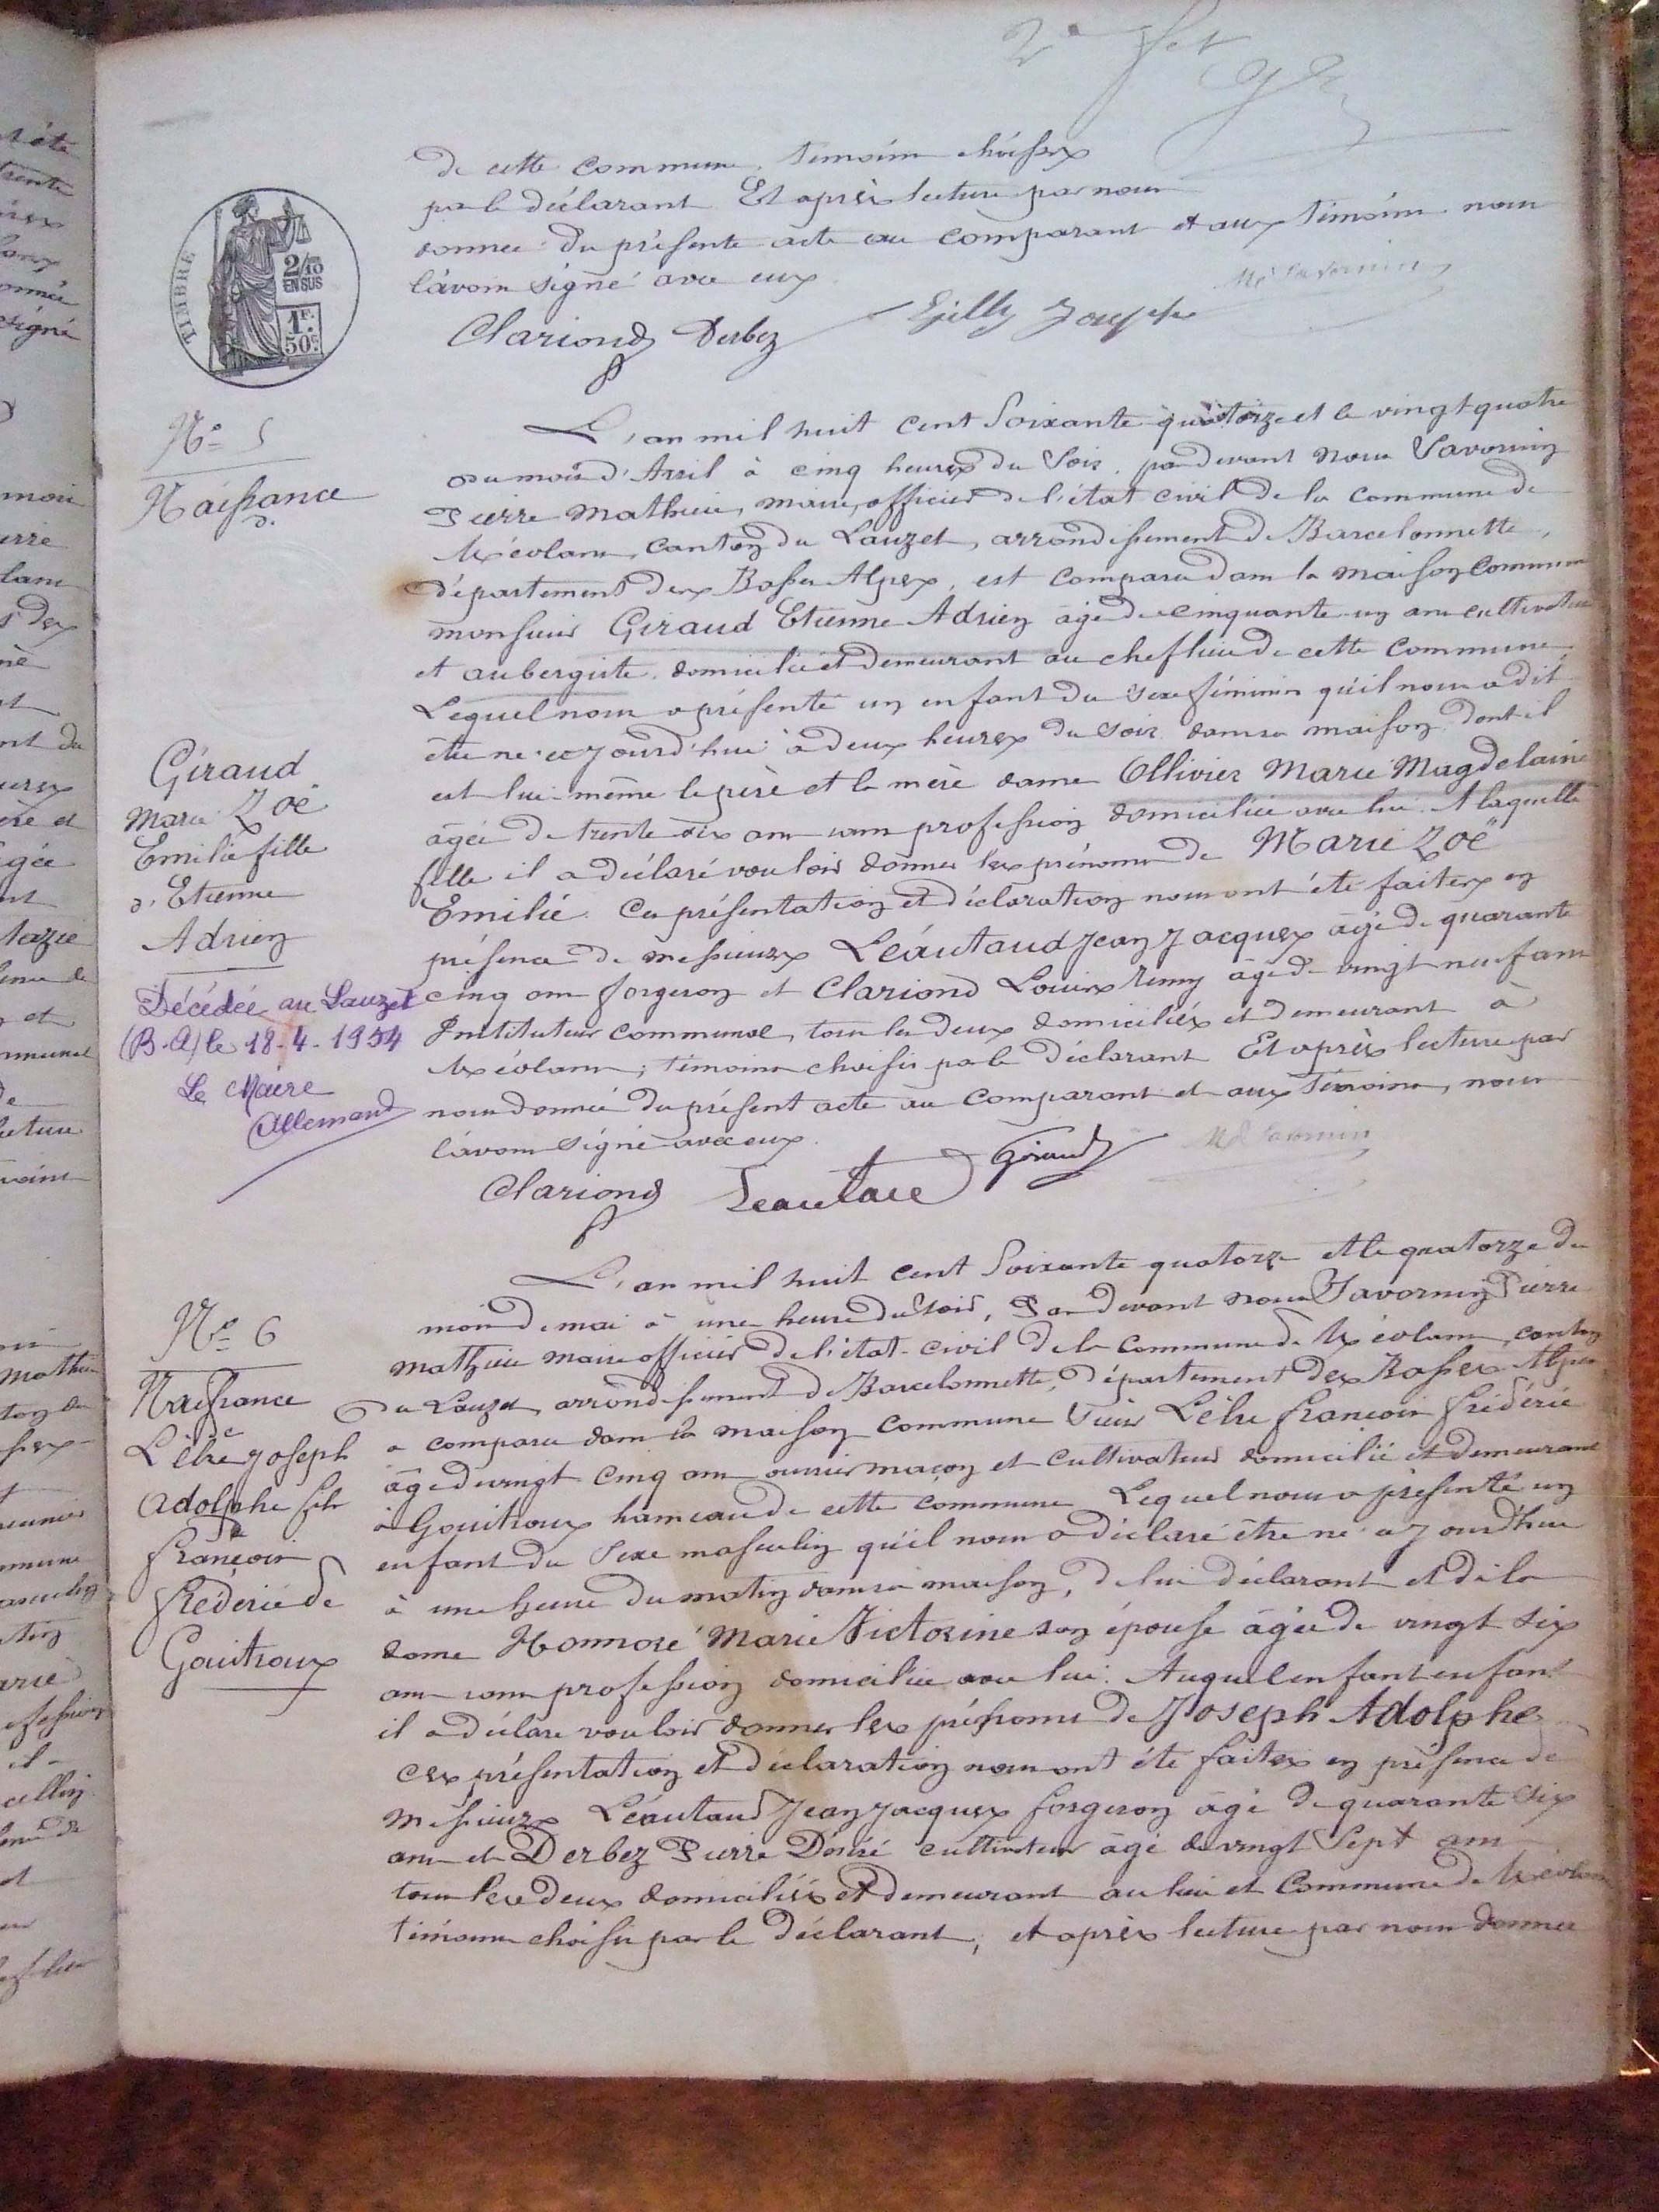 2e f et
de cette commune, témoins choisis
par le déclarant Et après lecture par nous
donnée du présente acte au comparant et aux témoins nous
l'avons signé avec eux
Clariond Derbez Gilly Joseph Mu Savornin
TIMBRE
2/10
EN SUS
1F.
50c.
N° 5
Naissance
Giraud
Marie Zoé
Emilie fille
d'Etienne
Adrien
Décédée au Lauzet
(B.A) le 18-4-1954
Le Maire
Allemand
L'an mil huit cent soixante quatorze et le vingt quatre
du mois d'Avril à cinq heures du soir, par devant nous Savornin
Pierre Mathieu, maire, officier de l'état civil de la commune de
Méolans, canton du Lauzet, arrondissement de Barcelonnette,
département des Basses Alpes, est comparu dans la maison commune
monsieur Giraud Etienne Adrien âgé de cinquante un ans cultivateur
et aubergiste, domicilié et demeurant au chef lieu de cette commune
Lequel nous a présenté un enfant du sexe féminin qu'il nous a dit
être né cejourd'hui à deux heures du soir dans sa maison dont il
est lui-même le père et la mère dame Ollivier Marie Magdelaine
âgée de trente six ans sans profession domiciliée avec lui. A laquelle
fille il a déclaré vouloir donner les prénoms de Marie Zoé
Emilie. Ces présentation et déclaration nous ont été faites en
présence de messieurs Léautaud Jean Jacques âgé de quarante
cinq ans forgeron et Clariond Louis Remy âgé de vingt neuf ans
Instituteur communal, tous les deux domiciliés et demeurant à
Méolans, témoins choisis par le déclarant Et après lecture par
nous donnée du présent acte au comparant et aux témoins, nous
l'avons signé avec eux.
Clariond Leautaud Giraud Mu Savornin
N° 6
Naissance
Lèbre Joseph
Adolphe fils
de
françois
frédéric de
Gouitroux
L'an mil huit cent soixante quatorze et le quatorze du
mois de mai à une heure du soir, Par devant nous Savornin Pierre
mathieu maire officier de l'état-civil de la commune de Méolans, canton
du Lauzet, arrondissement de Barcelonnette, département des Basses Alpes
a comparu dans la maison commune Sieur Lèbre françois frédéric
âgé de vingt cinq ans ouvrier maçon et cultivateur domicilié et demeurant
à Gouitroux hameau de cette commune Lequel nous a présenté un
enfant du sexe masculin qu'il nous a déclaré être né cejourd'hui
à une heure du matin dans sa maison, de lui déclarant et de la
dame Honnoré Marie Victorine son épouse âgée de vingt six
ans sans profession domiciliée avec lui. Auquel enfant enfant
il a déclaré vouloir donner les prénoms de Joseph Adolphe
ces présentation et déclaration nous ont été faites en présence de
messieurs Léautaud Jean Jacques forgeron âgé de quarante six
ans et Derbez Pierre Désiré cultivateur âgé de vingt sept ans
tous les deux domiciliés et demeurant au lieu et commune de Méolans
témoins choisis par le déclarant, et après lecture par nous donnée